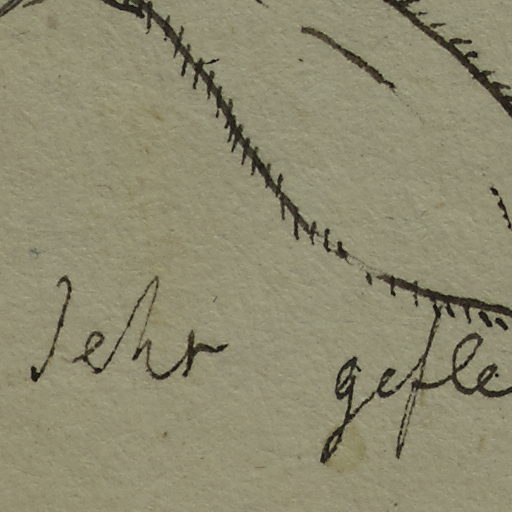 Sehr gefle